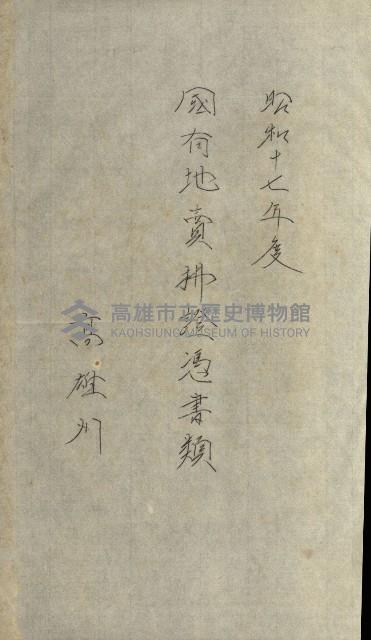 昭和十七年度
國有地賣拂證憑書類
高雄州
高雄市立歷史博物館
KAOHSIUNG MUSEUM OF HISTORY